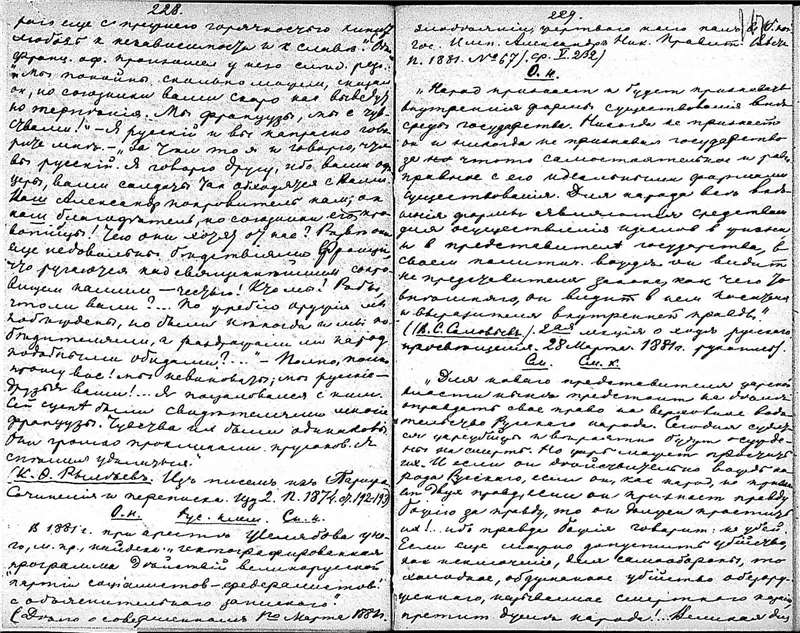 228.
раго еще с прежнего горячностью кипит
любовь к независимости и к славе". Один
франц. оф. произнес у него след. речь:
"Мы покойны, сколько можем, сказал
он, но союзники ваши скоро нас выведут
из терпения. Мы французы, мы с чув-
ствами!" – Я русский и вы напрасно гово-
рите мне. – "За тем то я и говорю, что
вы русский. Я говорю другу, ибо ваши офи-
церы, ваши солдаты так обходятся с нами.
Ваш Александр покровитель нам; он
наш благодетель, но союзники его кро-
вопийцы! Чего они хотят от нас? Разве они
еще недовольны бедствиями Франции,
что ругаются над священнейшим сокро-
вищем нашим – честью! Кто мы? Рабы,
что ли ваши?... По жребию оружия мы
побеждены, но были некогда и мы по-
бедителями, а раздражали ли народ
подобными обидами?..." – Полно, полно
прошу вас! мы невиноваты; мы русские –
друзья ваши!... Я поцеловался с ним.
Сей сцене были свидетелями многие
французы. Чувства их были одинаковы.
Они громко проклинали пруссаков. Я
спешил удалиться."
(К. Ф. Рылеев. Из писем из Парижа.
Сочинения и переписка. Изд 2. П. 1874. ср. 192-193)
О. н. Рус. См. н.
В 1881 г. при аресте Желябова у не-
го, м. пр., найдена: "гектографированная
программа действий великорусской
партии социалистов-федералистов
с объяснительною запискою."
(Дело о совершенном 1го Марта 1881 г.
229.
злодеянии, жертвою коего пал в Бозе
гос. Имп. Александр Ник. Правит. Вестн.
П. 1881. № 67/, ср. V. 232)
О. н.
"Народ признает и будет признавать
внутренния формы существования вне
среды государства. Никогда не признает
он и никогда не признавал государство
за нечто самостоятельное и рав-
правное с его идеальными формами
существования. Для народа все внеш-
ния формы являются средством
для осуществления идеалов в жизни
и в представителе государства, в
своем политич. вожде он видит
не представителя закона, как чего то
внешняго, он видит в нем носителя
и выразителя внутренней правды."
(В. С. Соловьев/, 2ая лекция о ходе русского
просвещения. 28 Марта 1881 г. рукопись).
См. См. к.
"Для новаго представителя царской
власти ныне предстоит не должно
оправдать свое право на верховное води-
тельство Русского народа. Сегодня судят-
ся цареубийцы и вероятно будут осужде-
ны на смерть. Но царь может простить
их. И если он действительно вождь на-
рода Русского, если он, как народ, не призна-
ет двух правд, если он признает правду
божию за правду, то он должен простить
их!.. ибо правда божия говорит: не убей.
Если еще можно допустить убийство,
как исключение, для самообороны, то
холодное, обдуманное убийство безору-
женного, называемое смертною казнью,
претит душе народа!... Великая ду-